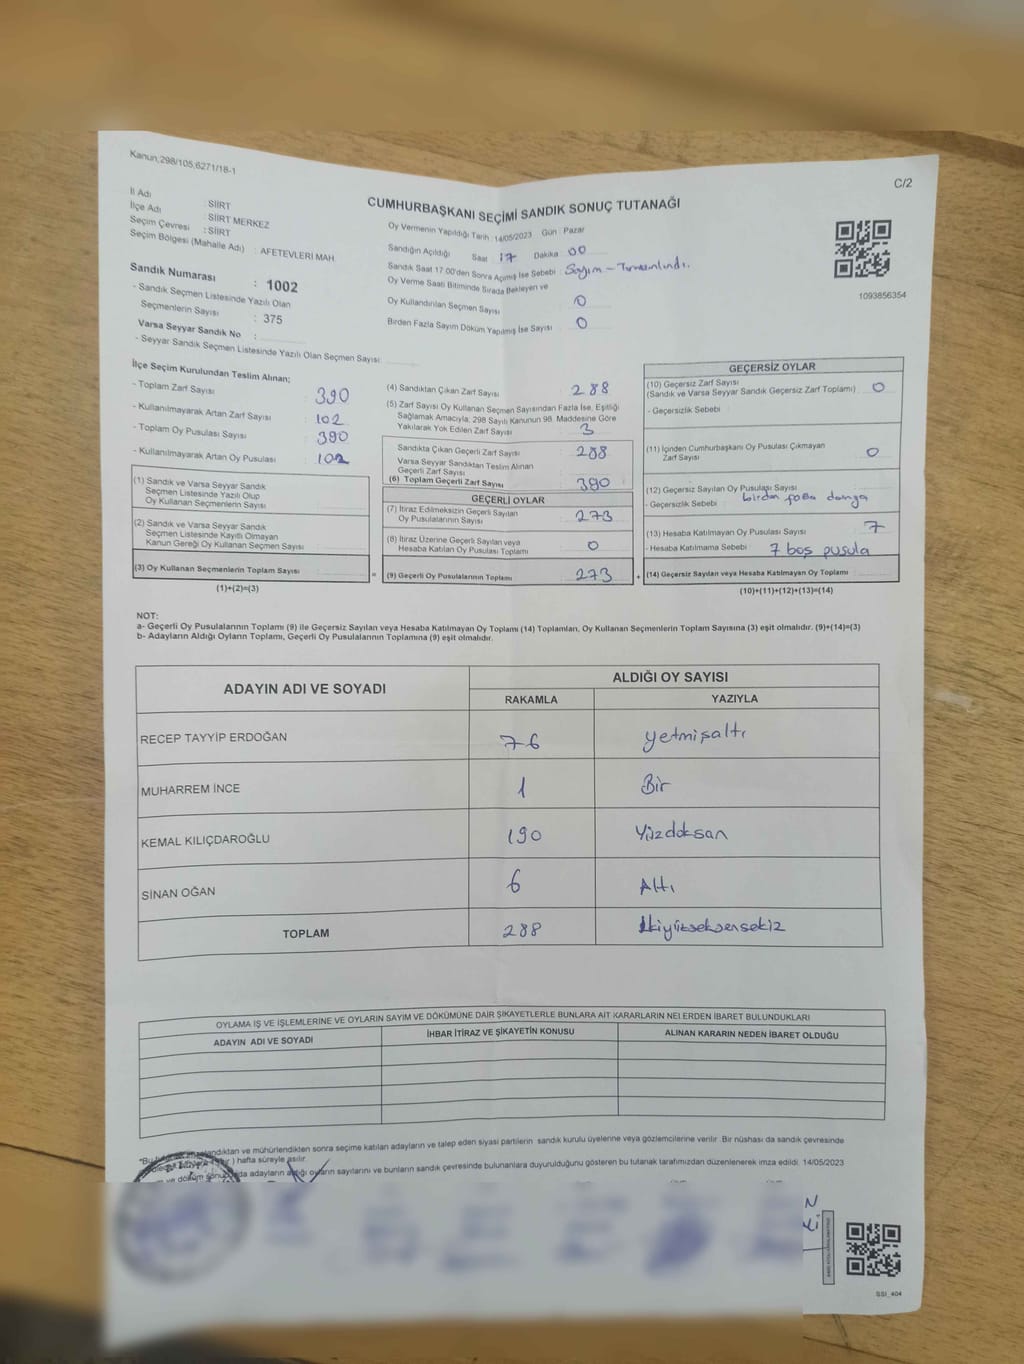 Kanun;298/105;6271/18-1
C/2
CUMHURBAŞKANI SEÇİMİ SANDIK SONUÇ TUTANAĞI
İl Adı : SİİRT
İlçe Adı : SİİRT MERKEZ
Seçim Çevresi : SİİRT
Seçim Bölgesi (Mahalle Adı) : AFETEVLERİ MAH
Sandık Numarası : 1002
- Sandık Seçmen Listesinde Yazılı Olan
Seçmenlerin Sayısı : 375
Varsa Seyyar Sandık No :
- Seyyar Sandık Seçmen Listesinde Yazılı Olan Seçmen Sayısı:
Oy Vermenin Yapıldığı Tarih 14/05/2023 Gün : Pazar
Sandığın Açıldığı Saat 17 Dakika 00
Sandık Saat 17:00'den Sonra Açılmış İse Sebebi : Sayım -
Oy Verme Saati Bitiminde Sırada Bekleyen ve
Oy Kullandırılan Seçmen Sayısı 0
Birden Fazla Sayım Döküm Yapılmış İse Sayısı : 0
1093856354
İlçe Seçim Kurulundan Teslim Alınan;
- Toplam Zarf Sayısı : 390
- Kullanılmayarak Artan Zarf Sayısı : 102
- Toplam Oy Pusulası Sayısı : 390
- Kullanılmayarak Artan Oy Pusulası : 102
(1) Sandık ve Varsa Seyyar Sandık
Seçmen Listesinde Yazılı Olup
Oy Kullanan Seçmenlerin Sayısı
(2) Sandık ve Varsa Seyyar Sandık
Seçmen Listesinde Kayıtlı Olmayan
Kanun Gereği Oy Kullanan Seçmen Sayısı
(3) Oy Kullanan Seçmenlerin Toplam Sayısı
(1)+(2)=(3)
=
(4) Sandıktan Çıkan Zarf Sayısı : 288
(5) Zarf Sayısı Oy Kullanan Seçmen Sayısından Fazla İse, Eşitliği
Sağlamak Amacıyla; 298 Sayılı Kanunun 98. Maddesine Göre
Yakılarak Yok Edilen Zarf Sayısı : 3
Sandıkta Çıkan Geçerli Zarf Sayısı : 288
Varsa Seyyar Sandıktan Teslim Alınan
Geçerli Zarf Sayısı
(6) Toplam Geçerli Zarf Sayısı : 390
GEÇERLİ OYLAR
(7) İtiraz Edilmeksizin Geçerli Sayılan
Oy Pusulalarının Sayısı : 273
(8) İtiraz Üzerine Geçerli Sayılan veya
Hesaba Katılan Oy Pusulası Toplamı : 0
(9) Geçerli Oy Pusulalarının Toplamı : 273
+
GEÇERSİZ OYLAR
(10) Geçersiz Zarf Sayısı
(Sandık ve Varsa Seyyar Sandık Geçersiz Zarf Toplamı) : 0
- Geçersizlik Sebebi :
(11) İçinden Cumhurbaşkanı Oy Pusulası Çıkmayan
Zarf Sayısı : 0
(12) Geçersiz Sayılan Oy Pusulası Sayısı :
- Geçersizlik Sebebi : birden fazla damga
(13) Hesaba Katılmayan Oy Pusulası Sayısı : 7
- Hesaba Katılmama Sebebi : 7 boş pusula
(14) Geçersiz Sayılan veya Hesaba Katılmayan Oy Toplamı :
(10)+(11)+(12)+(13)=(14)
NOT:
a- Geçerli Oy Pusulalarının Toplamı (9) ile Geçersiz Sayılan veya Hesaba Katılmayan Oy Toplamı (14) Toplamları, Oy Kullanan Seçmenlerin Toplam Sayısına (3) eşit olmalıdır. (9)+(14)=(3)
b- Adayların Aldığı Oyların Toplamı, Geçerli Oy Pusulalarının Toplamına (9) eşit olmalıdır.
ADAYIN ADI VE SOYADI
ALDIĞI OY SAYISI
RAKAMLA YAZIYLA
RECEP TAYYİP ERDOĞAN 76 yetmişaltı
MUHARREM İNCE 1 Bir
KEMAL KILIÇDAROĞLU 190 Yüzdoksan
SİNAN OĞAN 6 Altı
TOPLAM 288 ikiyüzseksensekiz
OYLAMA İŞ VE İŞLEMLERİNE VE OYLARIN SAYIM VE DÖKÜMÜNE DAİR ŞİKAYETLERLE BUNLARA AİT KARARLARIN NELERDEN İBARET BULUNDUKLARI
ADAYIN ADI VE SOYADI İHBAR İTİRAZ VE ŞİKAYETİN KONUSU ALINAN KARARIN NEDEN İBARET OLDUĞU
ve mühürlendikten sonra seçime katılan adayların ve talep eden siyasi partilerin sandık kurulu üyelerine veya gözlemcilerine verilir. Bir nüshası da sandık çevresinde
) hafta süreyle asılır.
adayların aldığı oyların sayılarını ve bunların sandık çevresinde bulunanlara duyurulduğunu gösteren bu tutanak tarafımızdan düzenlenerek imza edildi. 14/05/2023
SSI_404